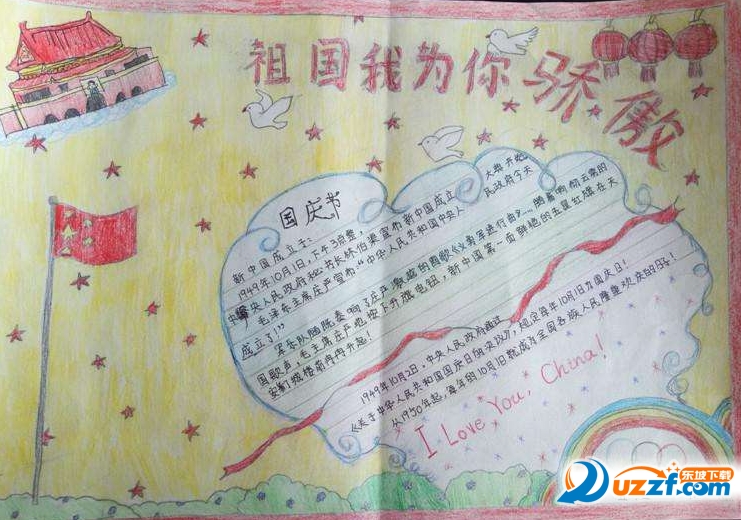 祖国我为你骄傲
国庆节
新中国成立于:
1949年10月1日,下午3点整,
中央人民政府秘书长林伯渠宣布新中国成立
大典开始
毛泽东主席庄严宣布"中华人民共和国中央人
民政府今天
成立了!"
国歌声,毛主席庄严地按下升旗电钮,新中国第一面鲜艳的五星红旗在天
安门城楼前冉冉升起!
1949年10月2日,中央人民政府通过
《关于中华人民共和国国庆日的决议》,规定每年10月1日为国庆日!
从1950年起,每年的10月1日就成为全国各族人民隆重欢庆的日子!
I Love You, China!
东坡下载
uzzf.com